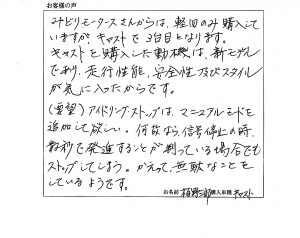 お客様の声
みどりモータースさんからは、軽四のみ購入して
いますが、キャストで3台目となります。
キャストを購入した動機は、新モデル
であり、走行性能、安全性及びスタイル
が気に入ったからです。
(要望)アイドリング・ストップは、マニュアルモードを
追加して欲しい。何故なら、信号停止の時、
数秒で発進することが判っている場合でも
ストップしてしまう。かえって、無駄なことを
しているようです。
お名前 三郎 購入車種 キャスト